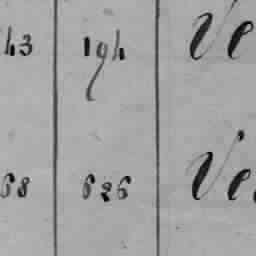 43 194 Ve
68 626 Ve